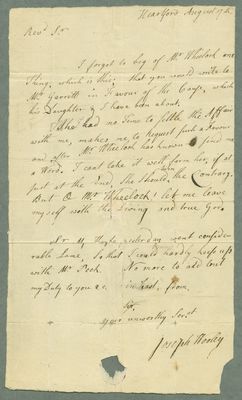 Heartford August 17th
Revd Sr
I forgot to beg of Mr Wheelock one
Thing, which is this; that you would write to
Mr Garritt in Favour of the Case, which
his Daughter & I have been about.
She had no Time to settle the Affair
with me, makes me to request such a Favour
and after Mr Wheelock has known to send me
a Word. I can't take it well form her, if at
just at the End, She should turn the Contrary.
But O Mr Wheelock! let me leave
my self with the Living and true God.
Sr My Horse yesterday went conside-
rable Lame, So that I could hardly
with Mr Peck. No more to add but
my Duty to you &c. in hast, from,
Sr,
your unworthy Servt
Joseph Woolley